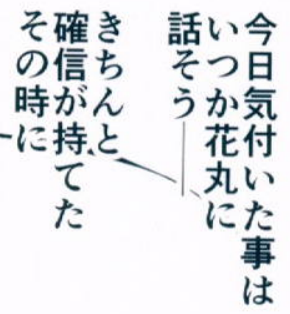 今日気付いた事は
いつか花丸に
話そう――
きちんと
確信が持てた
その時に